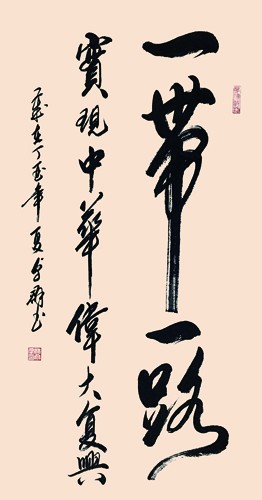 一帶一路
實現中華偉大复興
歲在丁酉年夏